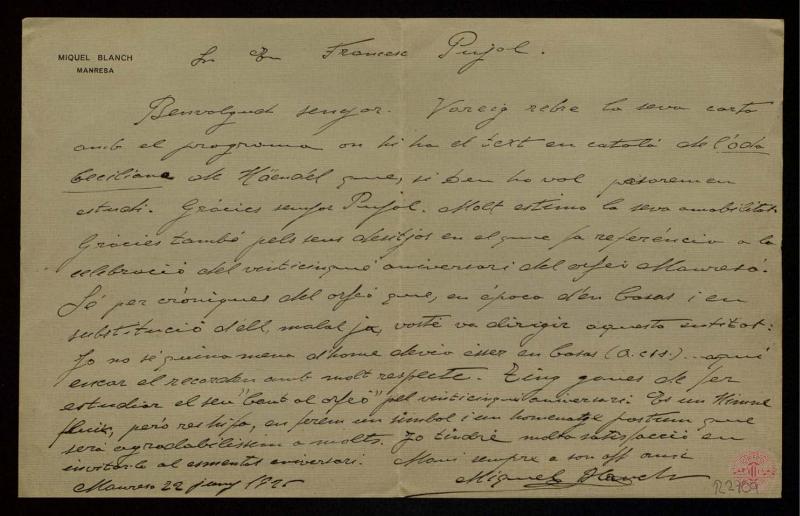 MIQUEL BLANCH
MANRESA
Sr En Francesc Pujol.
Benvolgut senyor. Vareig rebre la seva carta
amb el programa on hi ha el text en català de l'oda
Ceciliana de Häendel que, si Deu ho vol posarem en
estudi. Gràcies senyor Pujol. Molt estimo la seva amabilitat.
Gràcies també pels seus desitjos en el que fa referéncia a la
celebració del vinticinqué aniversari del orfeó Manresà.
Sé per cròniques del orfeó que, en época d'en Casas i en
substitució d'ell, malalt ja, vosté va dirigir aquesta entitat:
Jo no sé quina mena d'home devia ésser en Casas (a. c. s.)... aquí
encar el recorden amb molt respecte. Tinc ganes de fer
estudiar el seu "Cant al orfeó" pel vinticinqué aniversari. Es un Himne
fluix, però res hi fa, en farem un simbol i un homenatge postum que
será agradabilissim a molts. Jo tindré molta satisfacció en
invitar-le al esmentat aniversari. Mani sempre a son aff amic
Manresa 22 juny 1925 Miquel Blanch
R2709